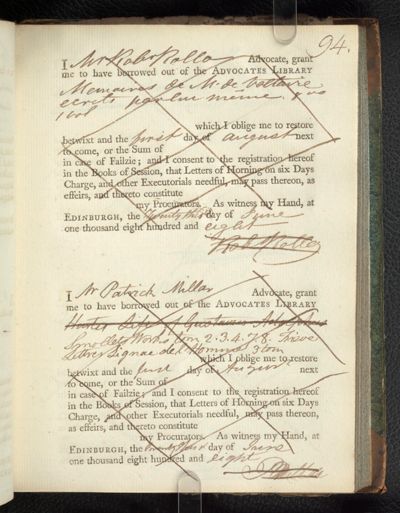 94.
I Mr Robt Rollo Advocate, grant
me to have borrowed out of the ADVOCATES LIBRARY
Memoires de M. de Voltaire
ecrits par lui même.
1 vol
which I oblige me to restore
betwixt and the first day of August next
to come, or the Sum of
in case of Failzie; and I consent to the registration hereof
in the Books of Session, that Letters of Horning on six Days
Charge, and other Executorials needful, may pass thereon, as
effeirs, and thereto constitute
my Procurators. As witness my Hand, at
EDINBURGH, the day of June
one thousand eight hundred and eight
Robt Rollo
I Mr Patrick Millar Advocate, grant
me to have borrowed out of the ADVOCATES LIBRARY
Life of Gustavus Adolphus
Works Tom 2.3.4.7.8.
3 tom
which I oblige me to restore
betwixt and the first day of August next
to come, or the Sum of
in case of Failzie; and I consent to the registration hereof
in the Books of Session, that Letters of Horning on six Days
Charge, and other Executorials needful, may pass thereon,
as effeirs, and thereto constitute
my Procurators. As witness my Hand, at
EDINBURGH, the day of June
one thousand eight hundred and eight